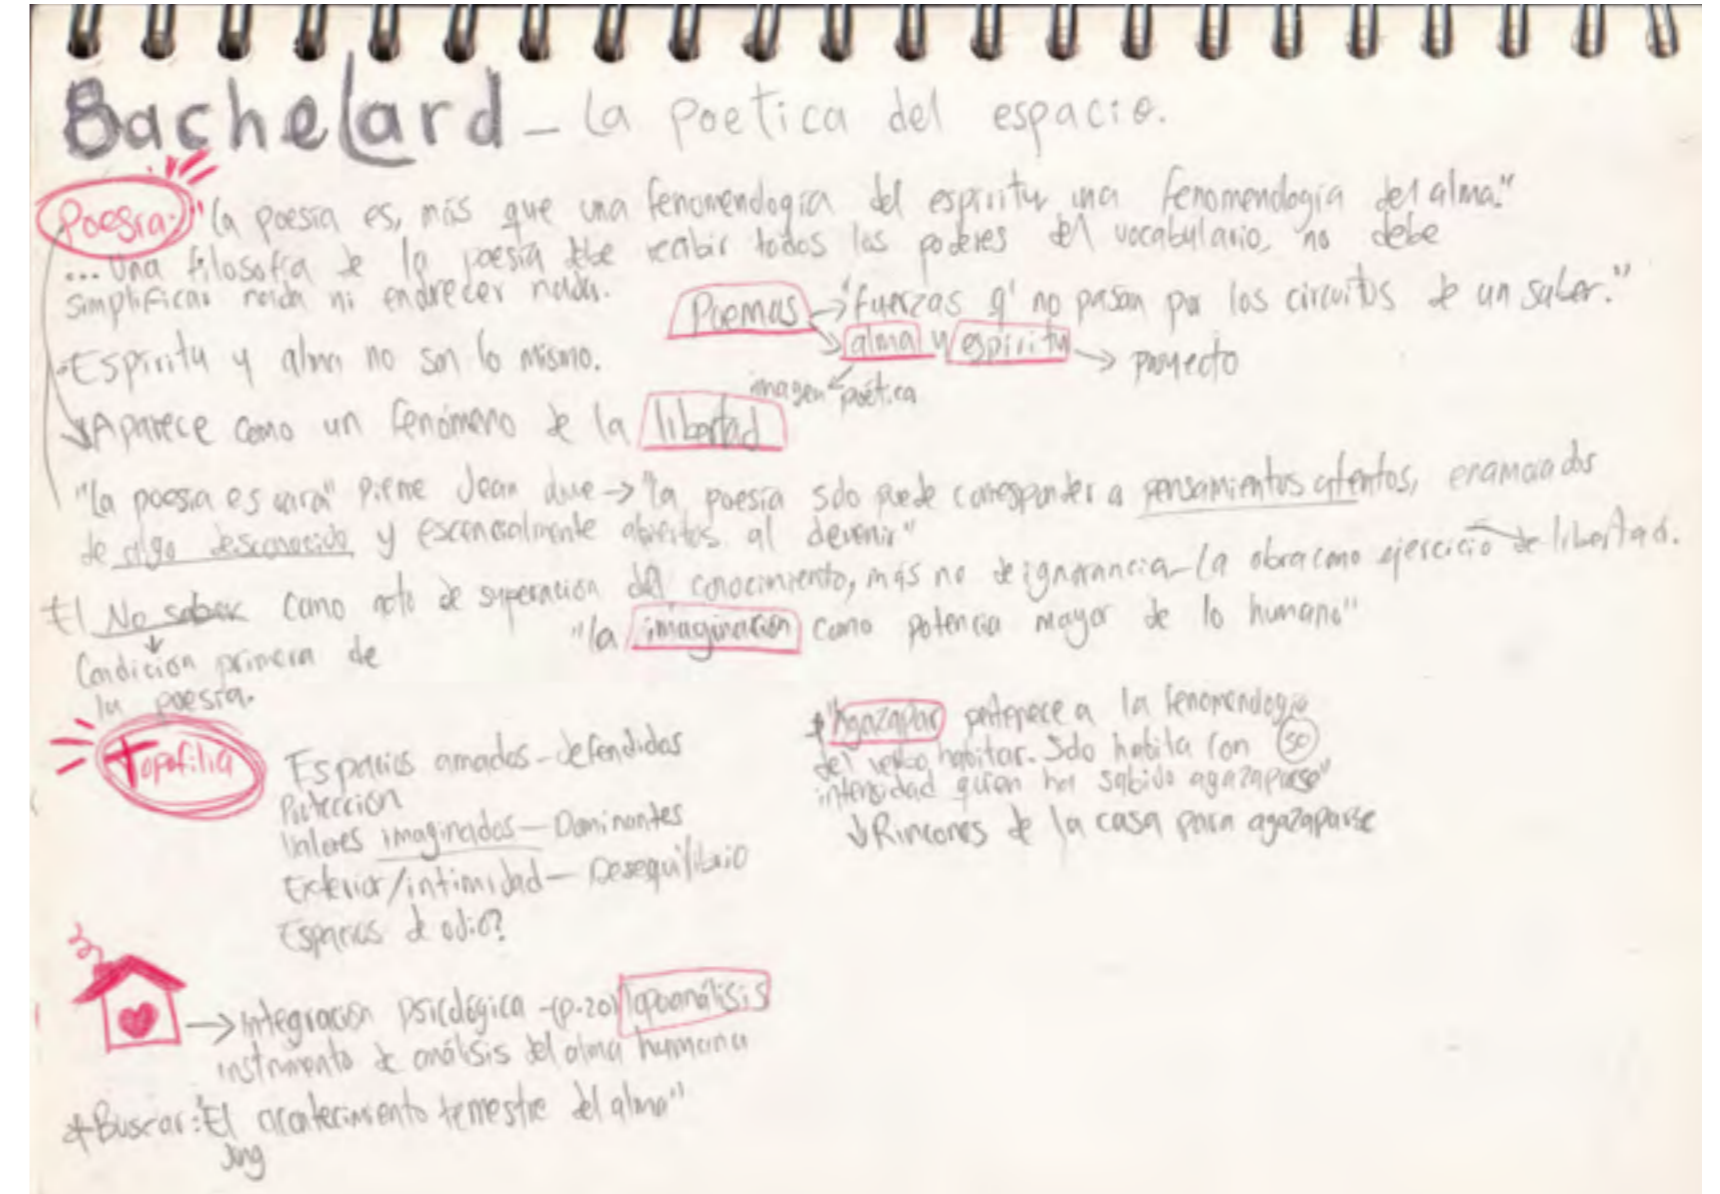 Bachelard - La poetica del espacio.
Poesía: "La poesía es, más que una fenomenología del espíritu una fenomenología del alma."
... Una filosofía de la poesía debe recibir todos los poderes del vocabulario, no debe
simplificar nada ni endurecer nada.
Poemas → "fuerzas q' no pasan por los circuitos de un saber."
alma y espíritu → proyecto
imagen poética
Espíritu y alma no son lo mismo.
Aparece como un fenómeno de la libertad
"La poesía es rara" Pierre Jean → "la poesía solo puede corresponder a pensamientos atentos, enamorados
de algo desconocido y escencialmente abiertos al devenir"
El No saber como acto de superación del conocimiento, más no de ignorancia - La obra como ejercicio de libertad.
Condición primera de
la poesía.
"la imaginación como potencia mayor de lo humano"
Topofilia
Espacios amados - defendidos
Protección
Valores imaginados - Dominantes
Exterior/intimidad - Desequilibrio
Espacios de odio?
* "Agazapar pertenece a la fenomenología
del verbo habitar. Solo habita con
intensidad quien ha sabido agazaparse"
50
↓ Rincones de la casa para agazaparse
→ Integración psicológica - (p.20) Topoanálisis
instrumento de análisis del alma humana
* Buscar: "El acontecimiento terrestre del alma"
Jung